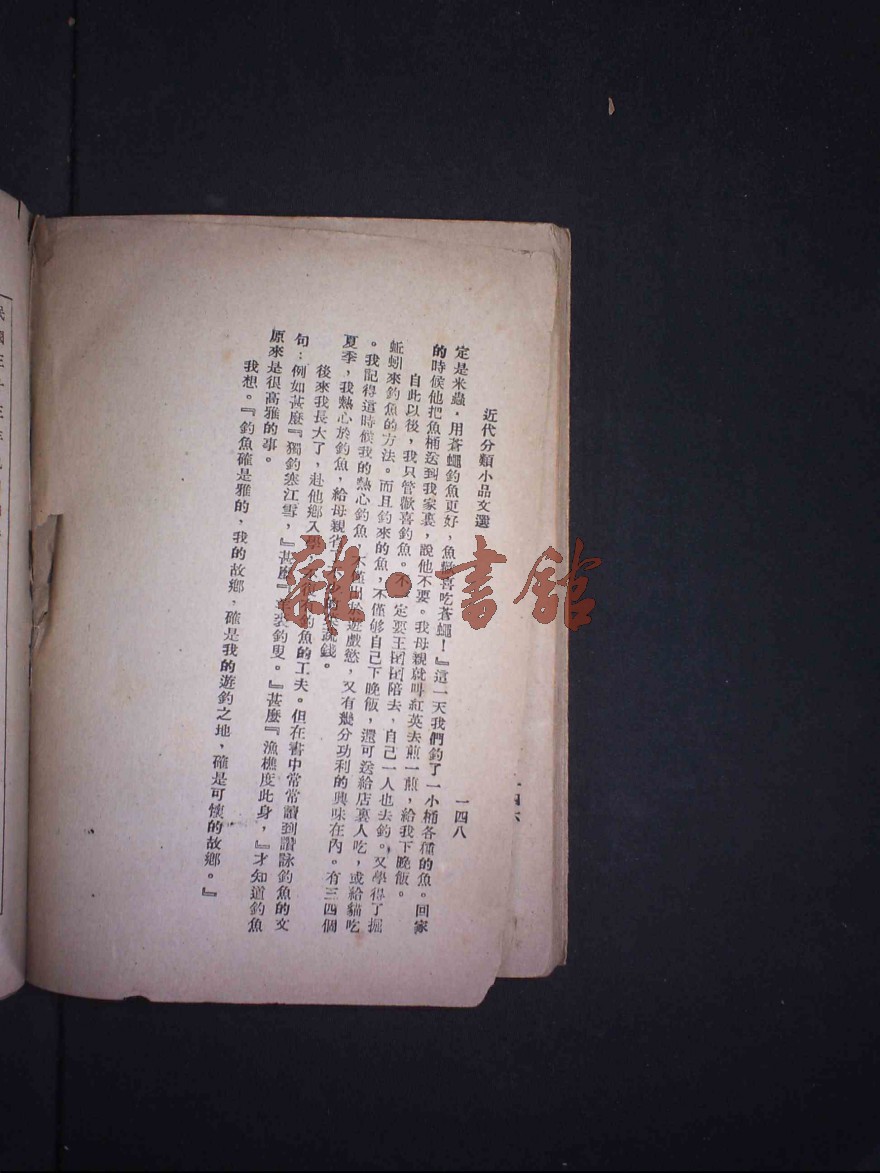 近代分類小品文選
一四八
定是米蟲，用蒼蠅釣魚更好，魚歡喜吃蒼蠅！』這一天我們釣了一小桶各種的魚。回家
的時候他把魚桶送到我家裏，說他不要。我母親就叫紅英去煎一煎，給我下晚飯。
自此以後，我只管歡喜釣魚。不一定要王囝囝陪去，自己一人也去釣。又學得了掘
蚯蚓來釣魚的方法。而且釣來的魚，不僅够自己下晚飯，還可送給店裏人吃，或給貓吃
。我記得這時候我的熱心釣魚，不僅出於遊戲慾，又有幾分功利的興味在內。有三四個
夏季，我熱心於釣魚，給母親省的菜蔬錢。
後來我長大了，赴他鄉入學，釣魚的工夫。但在書中常常讀到讚詠釣魚的文
句：例如甚麼『獨釣寒江雪，』甚麼『裘釣叟。』甚麼『漁樵度此身，』才知道釣魚
原來是很高雅的事。
我想。『釣魚確是雅的，我的故鄉，確是我的遊釣之地，確是可懷的故鄉。』
雜·書館